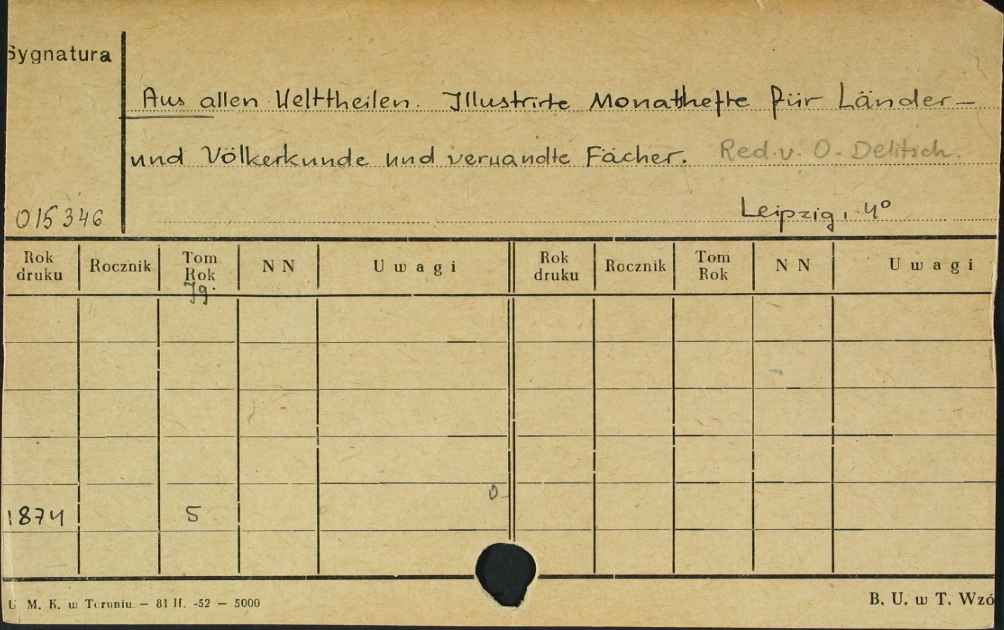 Sygnatura
Aus allen Welttheilen. Illustrirte Monatshefte für Länder-
und Völkerkunde und verwandte Fächer. Red. v. O. Delitsch.
015346
Leipzig, 4°
Rok druku Rocznik Tom Rok Jg. NN Uwagi Rok druku Rocznik Tom Rok NN Uwagi
0
1874 5
U. M. K. w Toruniu. — 81 II. -52 — 5000
B. U. w T. Wzó